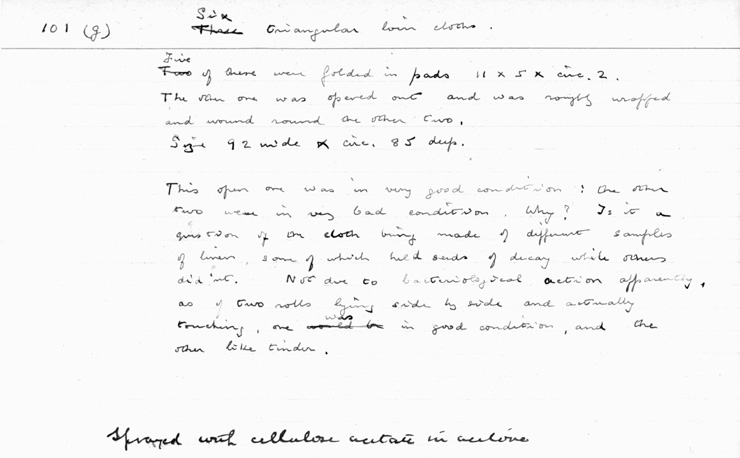 101 (g) Six Three triangular loin cloths.
Five
Two of these were folded in pads 11 x 5 x circ. 2.
The other one was opened out and was roughly wrapped
and wound round the other two.
Size 92 wide x circ. 85 deep.
This open one was in very good condition : the other
two were in very bad condition. Why? Is it a
question of the cloth being made of different samples
of linen, some of which held seeds of decay while others
did'nt. Not due to bacteriological action apparently,
as of two rolls lying side by side and actually
touching, one would be was in good condition, and the
other like tinder.
Sprayed with cellulose acetate in acetone